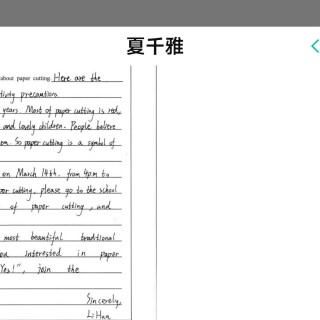 夏千雅
about paper cutting. Here are the
tivity precautions.
years. Most of paper cutting is red,
and lovely children. People believe
em. So paper cutting is a symbol of
on March 14th, from 4pm to
per cutting, please go to the school
of paper cutting, and
most beautiful traditional
ou interested in paper
Yes!", join the
Sincerely,
Li Hua